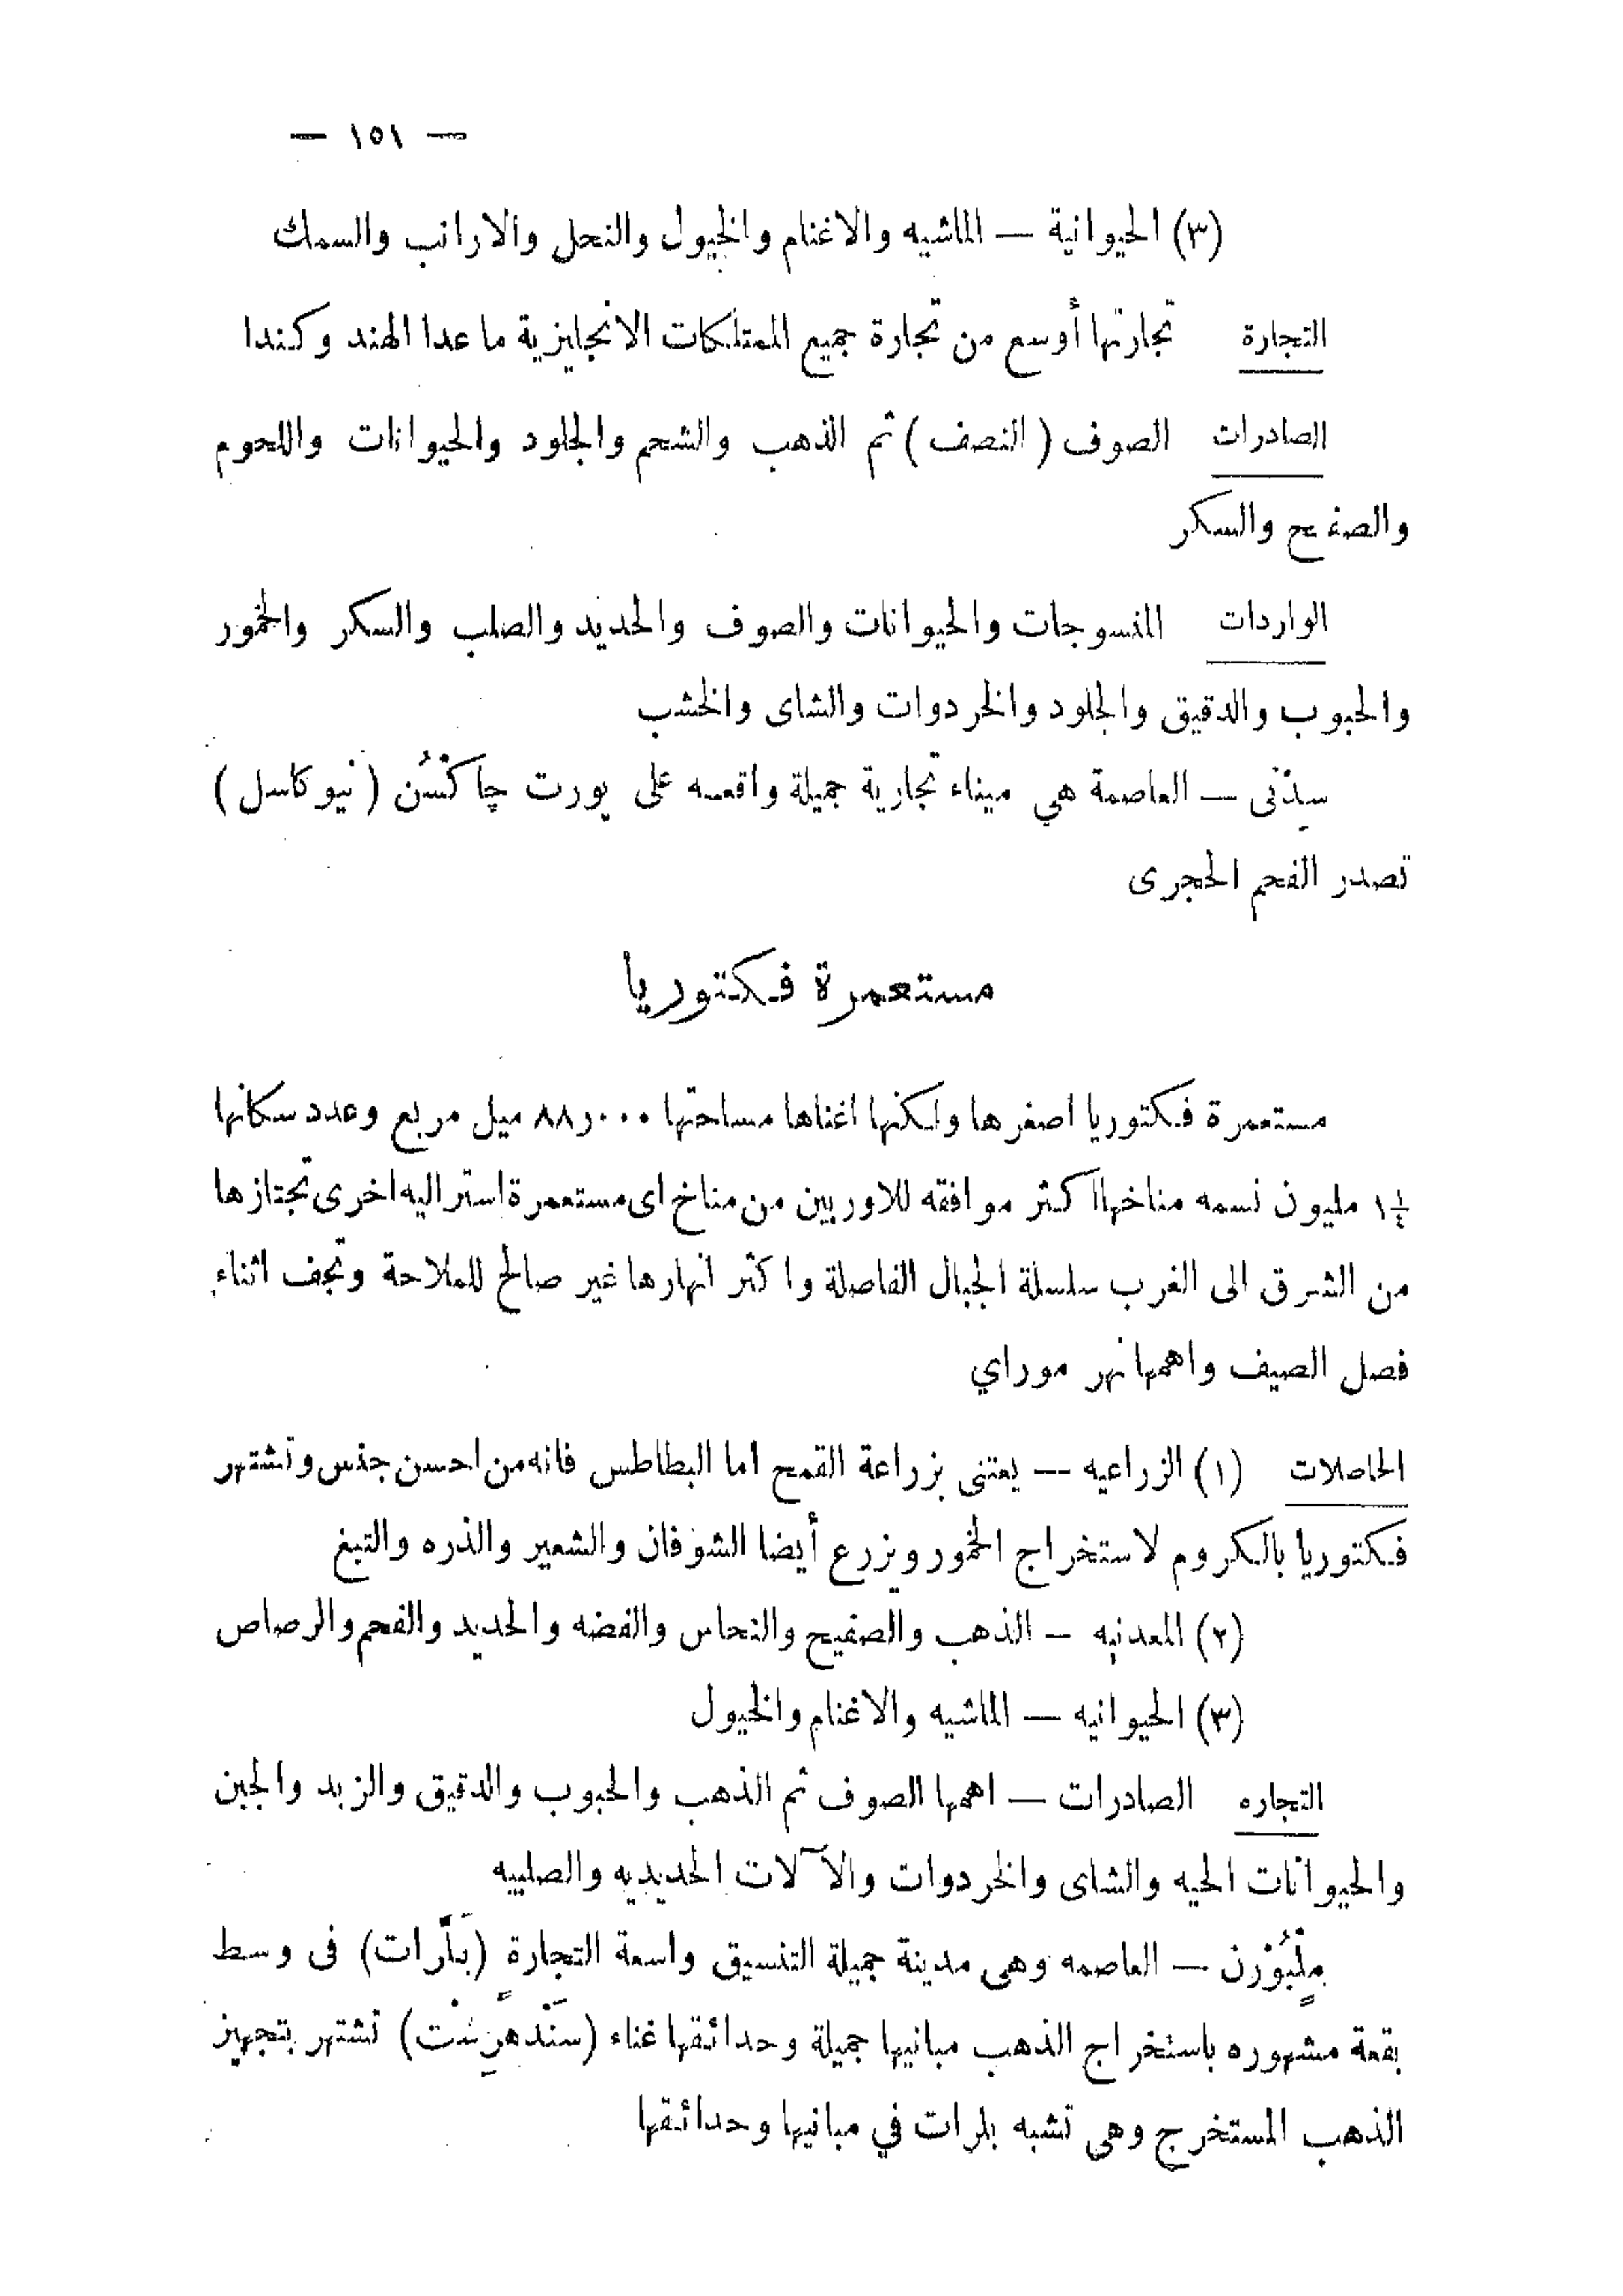 — ١٥١ —
(٣) الحيوانية — الماشيه والاغنام والخيول والنحل والارانب والسمك
التجارة تجارتها أوسع من تجارة جميع الممتلكات الانجليزية ما عدا الهند وكندا
الصادرات الصوف ( النصف ) ثم الذهب والشحم والجلود والحيوانات واللحوم
والصفيح والسكر
الواردات المنسوجات والحيوانات والصوف والحديد والصلب والسكر والخمور
والحبوب والدقيق والجلود والخردوات والشاى والخشب
سِدْنى — العاصمة هي ميناء تجارية جميلة واقعه على پورت چاكْسُن ( نيوكاسل )
تصدر الفحم الحجرى
مستعمرة فكتوريا
مستعمرة فكتوريا اصغرها ولكنها اغناها مساحتها ٨٨٫٠٠٠ ميل مربع وعدد سكانها
١¼ مليون نسمه مناخها اكثر موافقه للاوربيين من مناخ اى مستعمرة استراليه اخرى تجتازها
من الشرق الى الغرب سلسلة الجبال الفاصلة واكثر انهارها غير صالح للملاحة وتجف اثناء
فصل الصيف واهمها نهر موراي
الحاصلات (١) الزراعيه — يعتنى بزراعة القمح اما البطاطس فانه من احسن جنس وتشتهر
فكتوريا بالكروم لاستخراج الخمور ويزرع أيضا الشوفان والشعير والذره والتبغ
(٢) المعدنيه — الذهب والصفيح والنحاس والفضه والحديد والفحم والرصاص
(٣) الحيوانيه — الماشيه والاغنام والخيول
التجاره الصادرات — اهمها الصوف ثم الذهب والحبوب والدقيق والزبد والجبن
والحيوانات الحيه والشاى والخردوات والآلات الحديديه والصلبيه
مِلْبُوْرن — العاصمه وهى مدينة جميلة التنسيق واسعة التجارة (بَلَّرات) فى وسط
بقعة مشهوره باستخراج الذهب مبانيها جميلة وحدائقها غناء (سَنْدهِرِسْت) تشتهر بتجهيز
الذهب المستخرج وهى تشبه بلرات في مبانيها وحدائقها